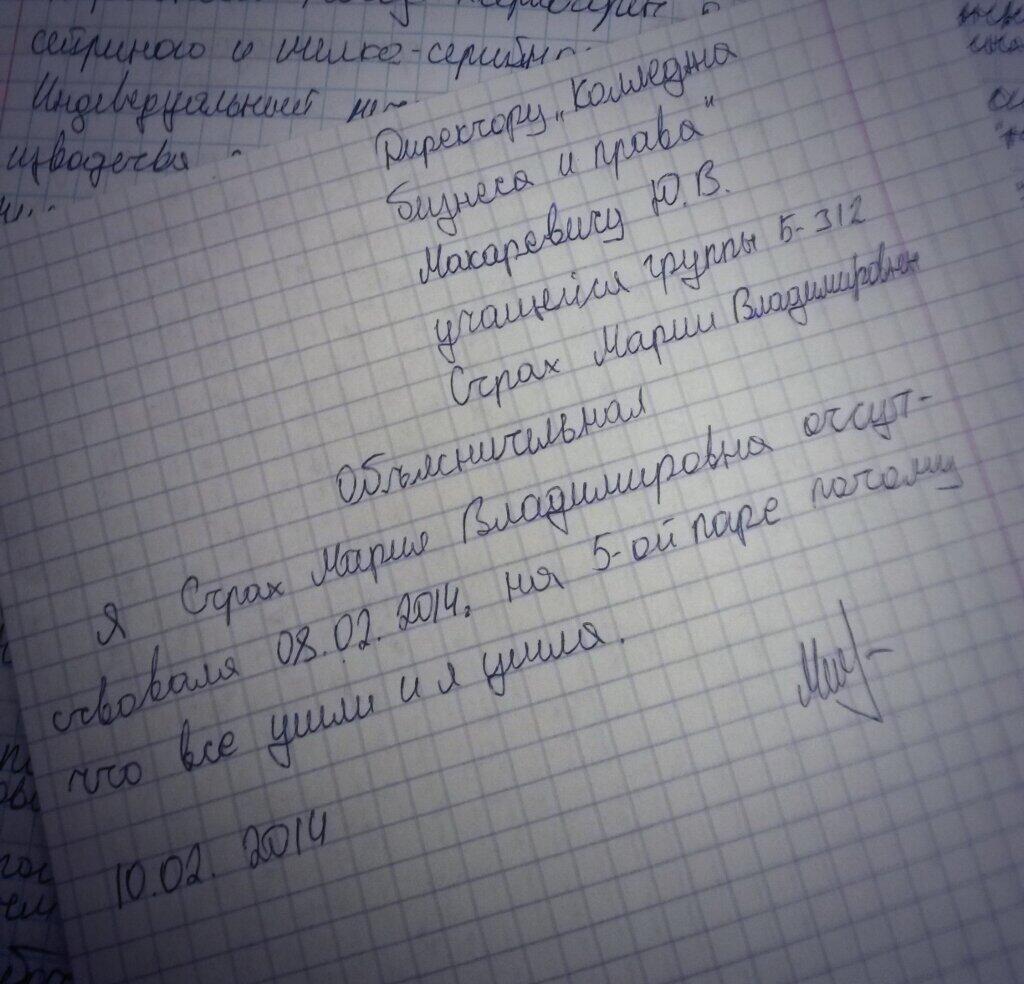 сетриного и мелко-серийн
Индеведуальный
изводства
Директору „Колледжа
бизнеса и права"
Макаревичу Ю.В.
учащейся группы 5-312
Страх Марии Владимировны
Объяснительная
Я Страх Мария Владимировна отсут-
ствовала 08.02.2014г на 5-ой паре потому
что все ушли и я ушла.
10.02.2014